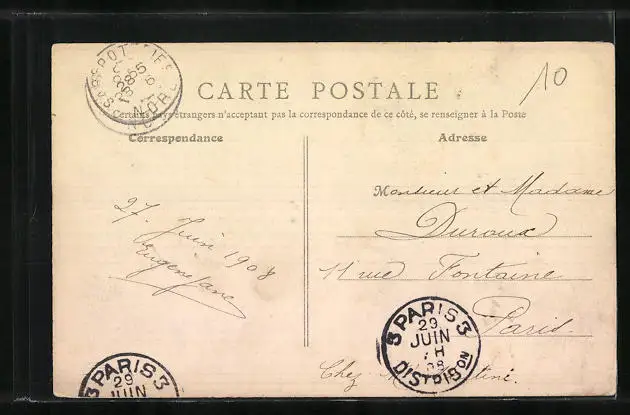 10
CARTE POSTALE
Certains pays étrangers n'acceptant pas la correspondance de ce côté, se renseigner à la Poste
Correspondance
Adresse
27 Juin 1908
Eugène
Monsieur et Madame
Duroux
11 rue Fontaine
Paris.
Chez
3 PARIS 3
29
JUIN
7H
08
DISTRIBON
3 PARIS 3
29
JUIN